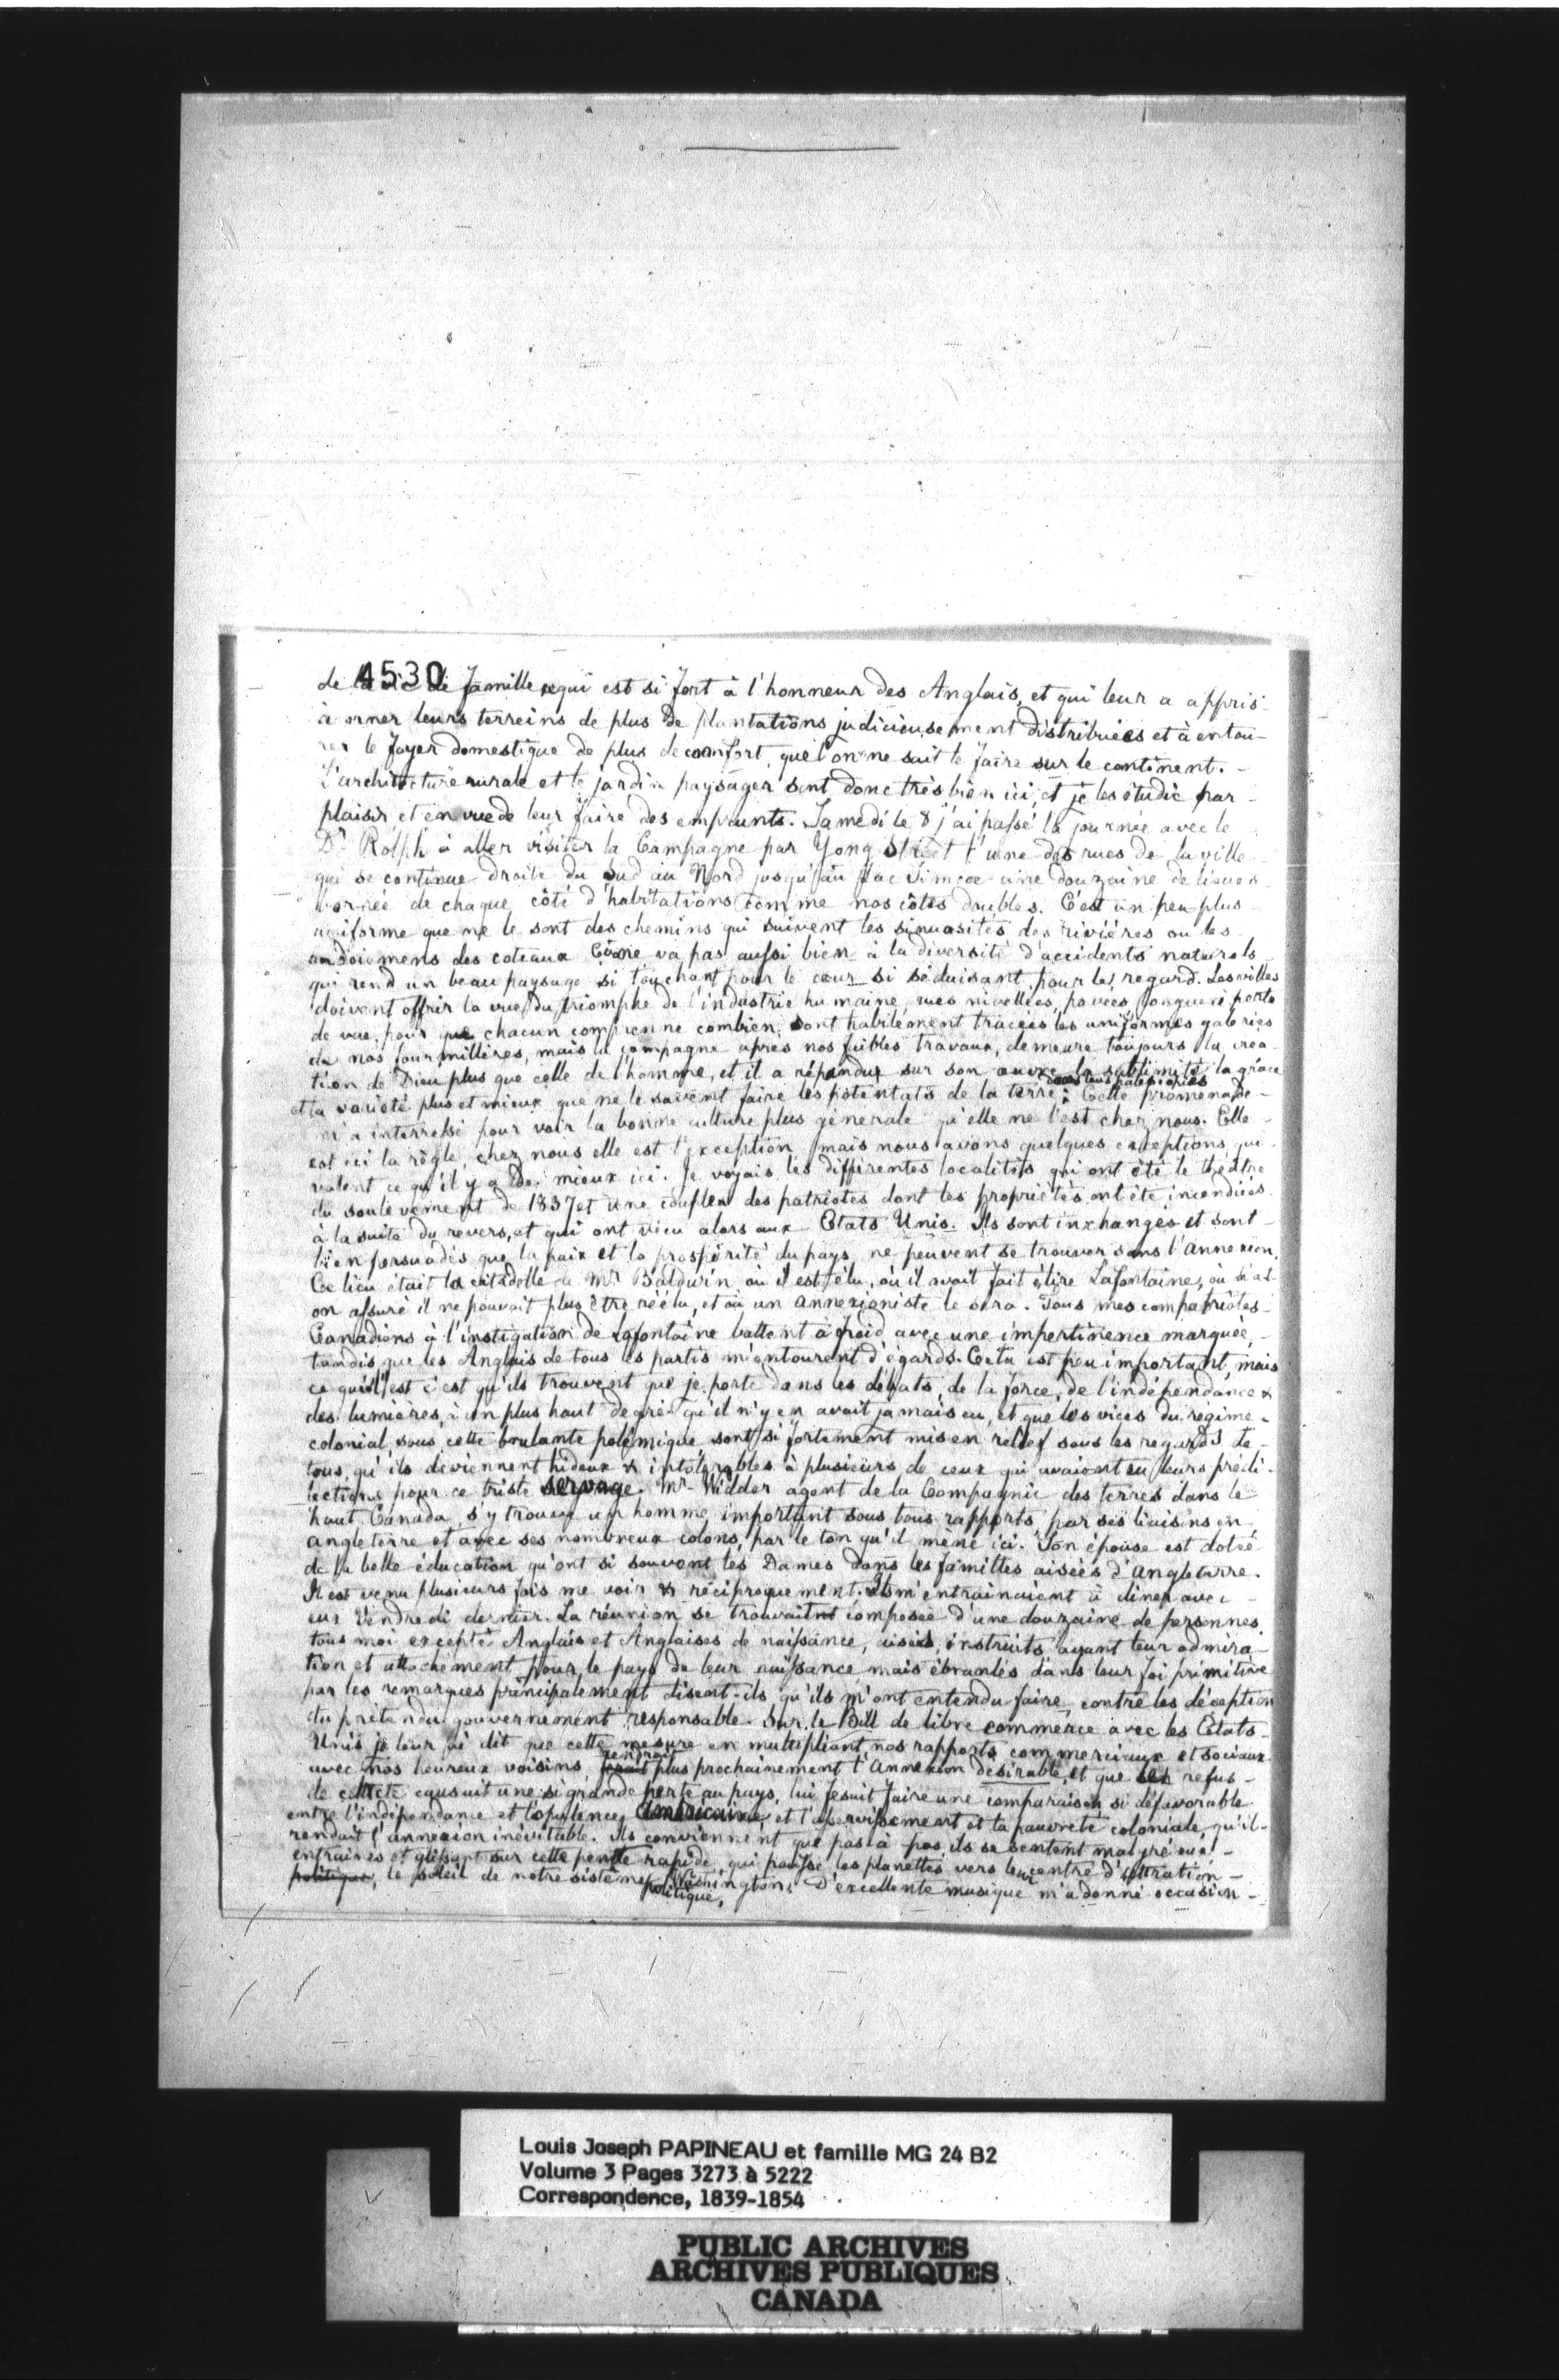 4530
de la vie de famille qui est si fort à l'honneur des Anglais, et qui leur a appris
à orner leurs terreins de plus de plantations judicieusement distribuées et à entou-
rer le foyer domestique de plus de comfort, que l'on ne sait le faire sur le continent. -
L'architecture rurale et le jardin paysager sont donc très bien ici, et je les étudie par -
plaisir et en vue de leur faire des emprunts. Samedi le 8 j'ai passé la journée avec le
Dr Rolph à aller visiter la Campagne par Yong Street l'une des rues de la ville
qui se continue droite du Sud au Nord jusqu'au Lac Simcoe une douzaine de lieues
bornée de chaque côté d'habitations comme nos côtes doubles. C'est un peu plus
uniforme que ne le sont des chemins qui suivent les sinuosités des rivières ou les
ondoiemens des coteaux Ça ne va pas aussi bien à la diversité d'accidents naturels
qui rend un beau paysage si touchant pour le cœur si séduisant pour les regard. Les villes
doivent offrir la vue du triomphe de l'industrie humaine, rues nivellées, pavées, longues à perte
de vue, pour que chacun comprenne combien sont habilement tracées les uniformes galeries
de nos fourmillères, mais la campagne après nos faibles travaux, demeure toujours la créa-
tion de Dieu plus que celle de l'homme, et il a répandu sur son œuvre la sublimité la grâce
et la variété plus et mieux que ne le savent faire les potentats de la terre dans leurs : Cette promenade -
m'a interressé pour voir la bonne culture plus générale qu'elle ne l'est chez nous. Elle -
est ici la règle, chez nous elle est l'exception, mais nous avons quelques exceptions qui
valent ce qu'il y a de mieux ici. Je voyais les différentes localités qui ont été le théâtre
du soulevement de 1837 et une couple des patriotes dont les propriétés ont été incendiées
à la suite du revers, et qui ont vécu alors aux Etats Unis. Ils sont inchangés et sont -
bien persuadés que la paix et la prospérité du pays ne peuvent se trouver sans l'annexion.
Ce lieu était la citadelle de Mr Baldwin où il est élu, où il avait fait élire Lafontaine, où m'a t-
on assuré il ne pouvait plus être réélu, et où un annexioniste le sera. Tous mes compatriotes -
Canadiens à l'instigation de Lafontaine battent à froid avec une impertinence marquée, -
tandis que les Anglais de tous les partis m'entourent d'égards. Cela est peu important, mais
ce qui l'est c'est qu'ils trouvent que je porte dans les débats, de la force, de l'indépendance &
des lumières, à un plus haut degré qu'il n'y en avait jamais eu, et que les vices du régime -
colonial, sous cette brulante polémique, sont si fortement mis en relief sous les regards de -
tous, qu'ils deviennent hideux & intolérables à plusieurs de ceux qui avaient eu leurs prédi-
lections pour ce triste servage. Mr Widder agent de la Compagnie des terres dans le
haut Canada, s'y trouve un homme important sous tous rapports, par ses liaisons en
angleterre et avec ses nombreux colons, par le ton qu'il mène ici. Son épouse est dotée
de la belle éducation qu'ont si souvent les Dames dans les familles aisées d'angleterre.
Il est venu plusieurs fois me voir & réciproquement. Ils m'entrainaient à diner avec -
eux Vendredi dernier. La réunion se trouvait composée d'une douzaine de personnes,
tous moi excepté Anglais et Anglaises de naissance, aisés, instruits ayant leur admira-
tion et attachement pour le pays de leur naissance mais ébranlés dans leur foi primitive
par les remarques principalement disent-ils qu'ils m'ont entendu faire, contre les déception
du prétendu gouvernement responsable. Sur le Bill de libre commerce avec les Etats -
Unis je leur ai dit que cette mesure en multipliant nos rapports commerciaux et sociaux
avec nos heureux voisins, rendrait plus prochainement l'annexion désirable, et que son refus -
de causait une si grande perte au pays, lui fesait faire une comparaison si défavorable
entre l'indépendance et l'opulence Américaine, et l'asservissement et la pauvreté coloniale, qu'il -
rendait l'annexion inévitable. Ils conviennent que pas à pas, ils se sentent malgré eux -
entraînés et glissant sur cette pente rapide, qui pousse les planettes vers leur centre d'attration -
politique, le soleil de notre sistême politique, Washington. D'excellente musique m'a donné occasion -
Louis Joseph PAPINEAU et famille MG 24 B2
Volume 3 Pages 3273 à 5222
Correspondence, 1839-1854
PUBLIC ARCHIVES
ARCHIVES PUBLIQUES
CANADA